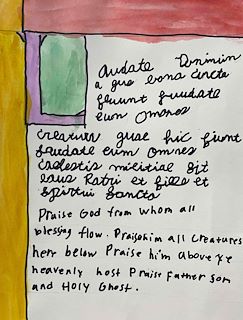 audate Dominim
a quo bona cincta
fluunt fuudate
eum omones
creaturr quae hic fiunt
faudate eum omnes
cxelestis militiae sit
laus Ratri et filio et
spiritui Sancto
Praise God from Whom all
blessing flow. Praishim all Creatures
herr below Praise him Above ye
heavenly host Praise Father Son
and HOly Ghost.